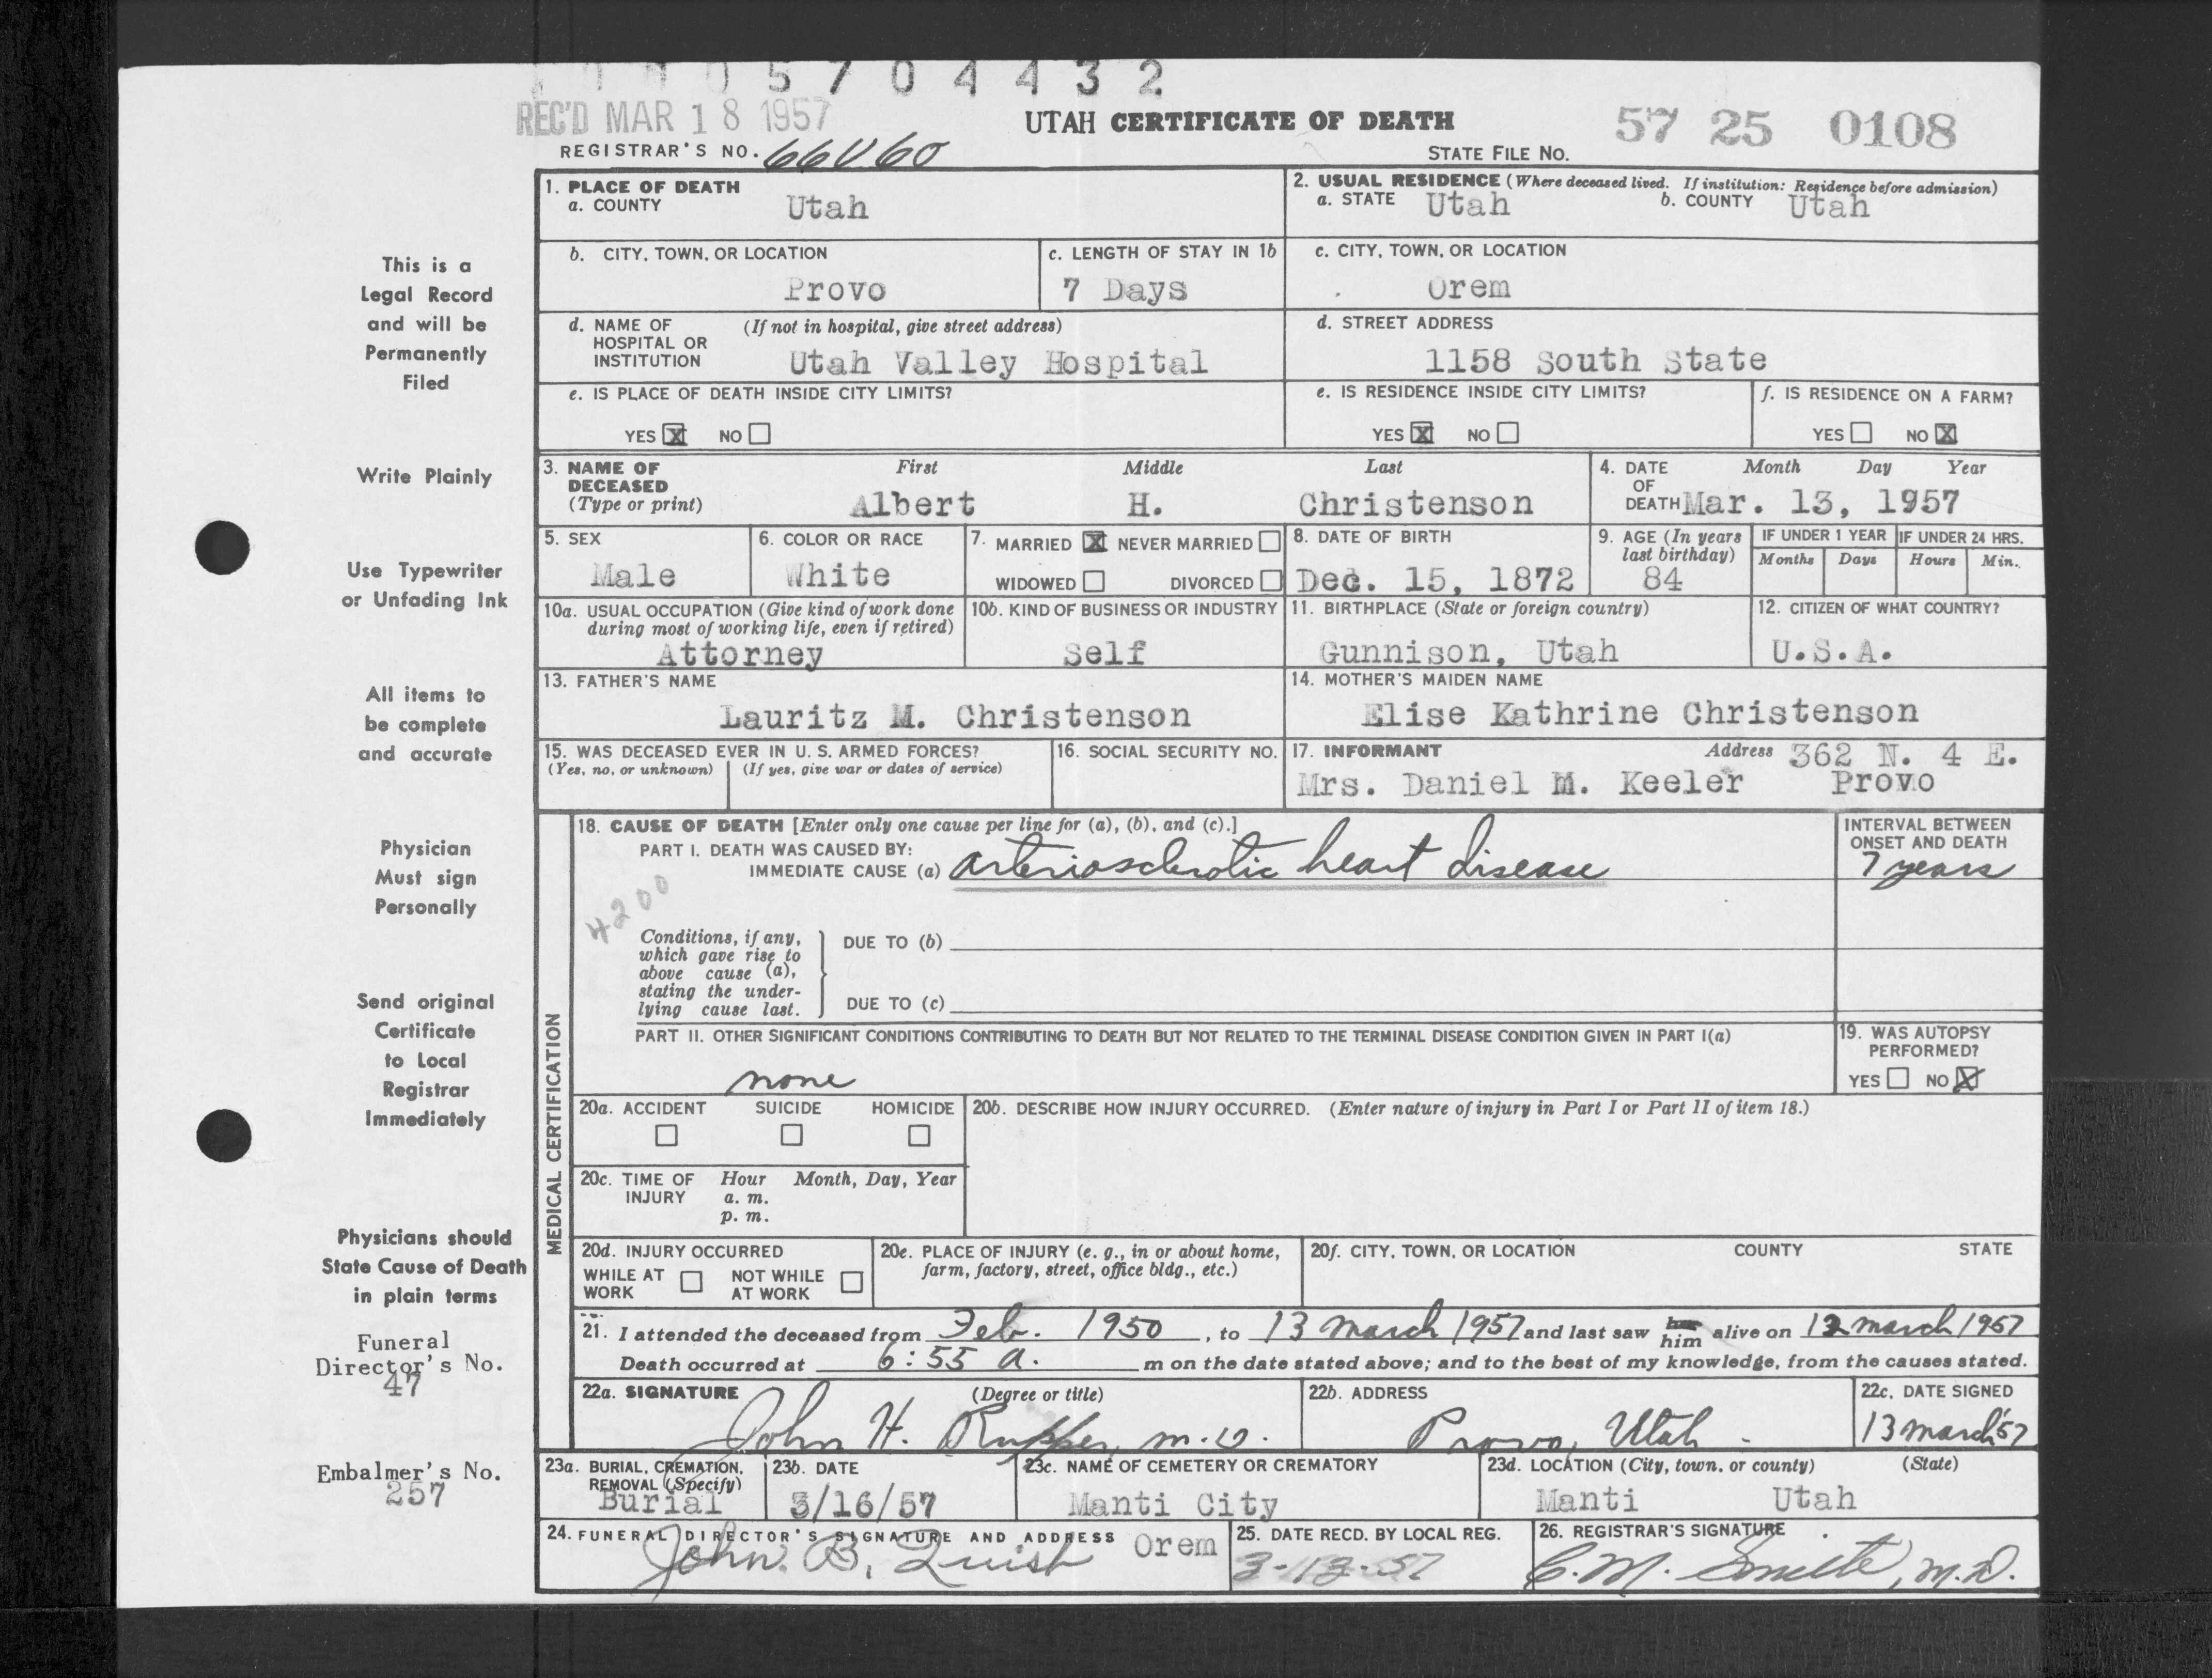 5 7 0 4 4 3 2
REC'D MAR 18 1957
UTAH CERTIFICATE OF DEATH
57 25 0108
REGISTRAR'S NO.
STATE FILE No.
This is a
Legal Record
and will be
Permanently
Filed
Write Plainly
Use Typewriter
or Unfading Ink
All items to
be complete
and accurate
Physician
Must sign
Personally
Send original
Certificate
to Local
Registrar
Immediately
Physicians should
State Cause of Death
in plain terms
Funeral
Director's No.
47
Embalmer's No.
257
1. PLACE OF DEATH
a. COUNTY Utah
2. USUAL RESIDENCE (Where deceased lived. If institution: Residence before admission)
a. STATE Utah b. COUNTY Utah
b. CITY, TOWN, OR LOCATION
Provo
c. LENGTH OF STAY IN 1b
7 Days
c. CITY, TOWN, OR LOCATION
Orem
d. NAME OF HOSPITAL OR INSTITUTION (If not in hospital, give street address)
Utah Valley Hospital
d. STREET ADDRESS
1158 South State
e. IS PLACE OF DEATH INSIDE CITY LIMITS?
YES X NO
e. IS RESIDENCE INSIDE CITY LIMITS?
YES X NO
f. IS RESIDENCE ON A FARM?
YES NO X
3. NAME OF DECEASED (Type or print) First Middle Last
Albert H. Christenson
4. DATE OF DEATH Month Day Year
Mar. 13, 1957
5. SEX
Male
6. COLOR OR RACE
White
7. MARRIED X NEVER MARRIED
WIDOWED DIVORCED
8. DATE OF BIRTH
Dec. 15, 1872
9. AGE (In years last birthday)
84
IF UNDER 1 YEAR
Months Days
IF UNDER 24 HRS.
Hours Min.
10a. USUAL OCCUPATION (Give kind of work done
during most of working life, even if retired)
Attorney
10b. KIND OF BUSINESS OR INDUSTRY
Self
11. BIRTHPLACE (State or foreign country)
Gunnison, Utah
12. CITIZEN OF WHAT COUNTRY?
U.S.A.
13. FATHER'S NAME
Lauritz M. Christenson
14. MOTHER'S MAIDEN NAME
Elise Kathrine Christenson
15. WAS DECEASED EVER IN U. S. ARMED FORCES?
(Yes, no, or unknown) (If yes, give war or dates of service)
16. SOCIAL SECURITY NO.
17. INFORMANT Address 362 N. 4 E.
Mrs. Daniel M. Keeler Provo
MEDICAL CERTIFICATION
18. CAUSE OF DEATH [Enter only one cause per line for (a), (b), and (c).]
PART I. DEATH WAS CAUSED BY:
IMMEDIATE CAUSE (a) arteriosclerotic heart disease
INTERVAL BETWEEN
ONSET AND DEATH
7 years
4200
Conditions, if any,
which gave rise to
above cause (a),
stating the under-
lying cause last.
DUE TO (b)
DUE TO (c)
PART II. OTHER SIGNIFICANT CONDITIONS CONTRIBUTING TO DEATH BUT NOT RELATED TO THE TERMINAL DISEASE CONDITION GIVEN IN PART I(a)
none
19. WAS AUTOPSY
PERFORMED?
YES NO X
20a. ACCIDENT SUICIDE HOMICIDE
20b. DESCRIBE HOW INJURY OCCURRED. (Enter nature of injury in Part I or Part II of item 18.)
20c. TIME OF INJURY Hour Month, Day, Year
a. m.
p. m.
20d. INJURY OCCURRED
WHILE AT WORK NOT WHILE AT WORK
20e. PLACE OF INJURY (e. g., in or about home,
farm, factory, street, office bldg., etc.)
20f. CITY, TOWN, OR LOCATION COUNTY STATE
21. I attended the deceased from Feb. 1950, to 13 March 1957 and last saw him alive on 12 march 1957
Death occurred at 6:55 a. m on the date stated above; and to the best of my knowledge, from the causes stated.
22a. SIGNATURE (Degree or title)
John H. Rupper, m.D.
22b. ADDRESS
Provo, Utah
22c. DATE SIGNED
13 march '57
23a. BURIAL, CREMATION,
REMOVAL (Specify)
Burial
23b. DATE
3/16/57
23c. NAME OF CEMETERY OR CREMATORY
Manti City
23d. LOCATION (City, town, or county) (State)
Manti Utah
24. FUNERAL DIRECTOR'S SIGNATURE AND ADDRESS
John B. Orem
25. DATE RECD. BY LOCAL REG.
26. REGISTRAR'S SIGNATURE
C. M. Smith, M.D.